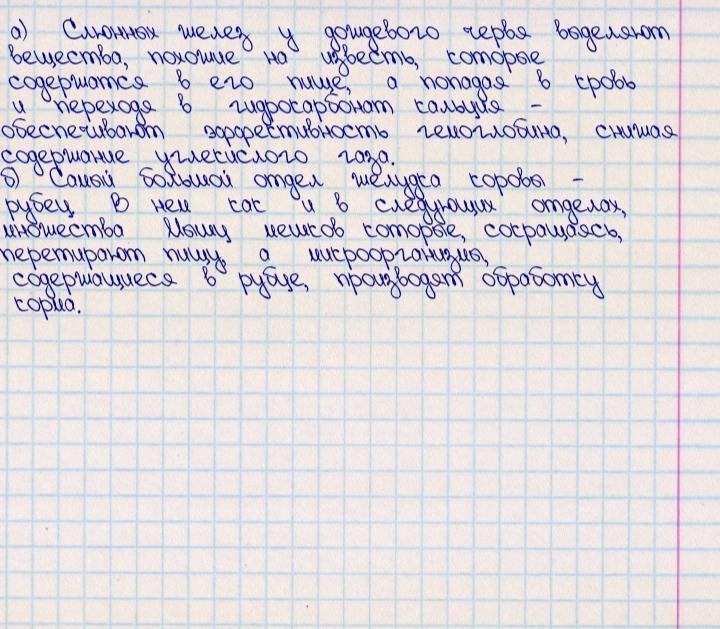 а) Слюнных желез у дождевого червя выделяют
вещества, похожие на известь, которые
содержатся в его пище, а попадая в кровь
и переходя в гидрокарбонат кальция -
обеспечивают эффективность гемоглобина, снижая
содержание углекислого газа.
б) Самый большой отдел желудка коровы -
рубец В нем как и в следующих отделах,
множества Мышц мешков которые, сокращаясь,
перетирают пищу, а микроорганизмы,
содержащиеся в рубце, производят обработку
корма.